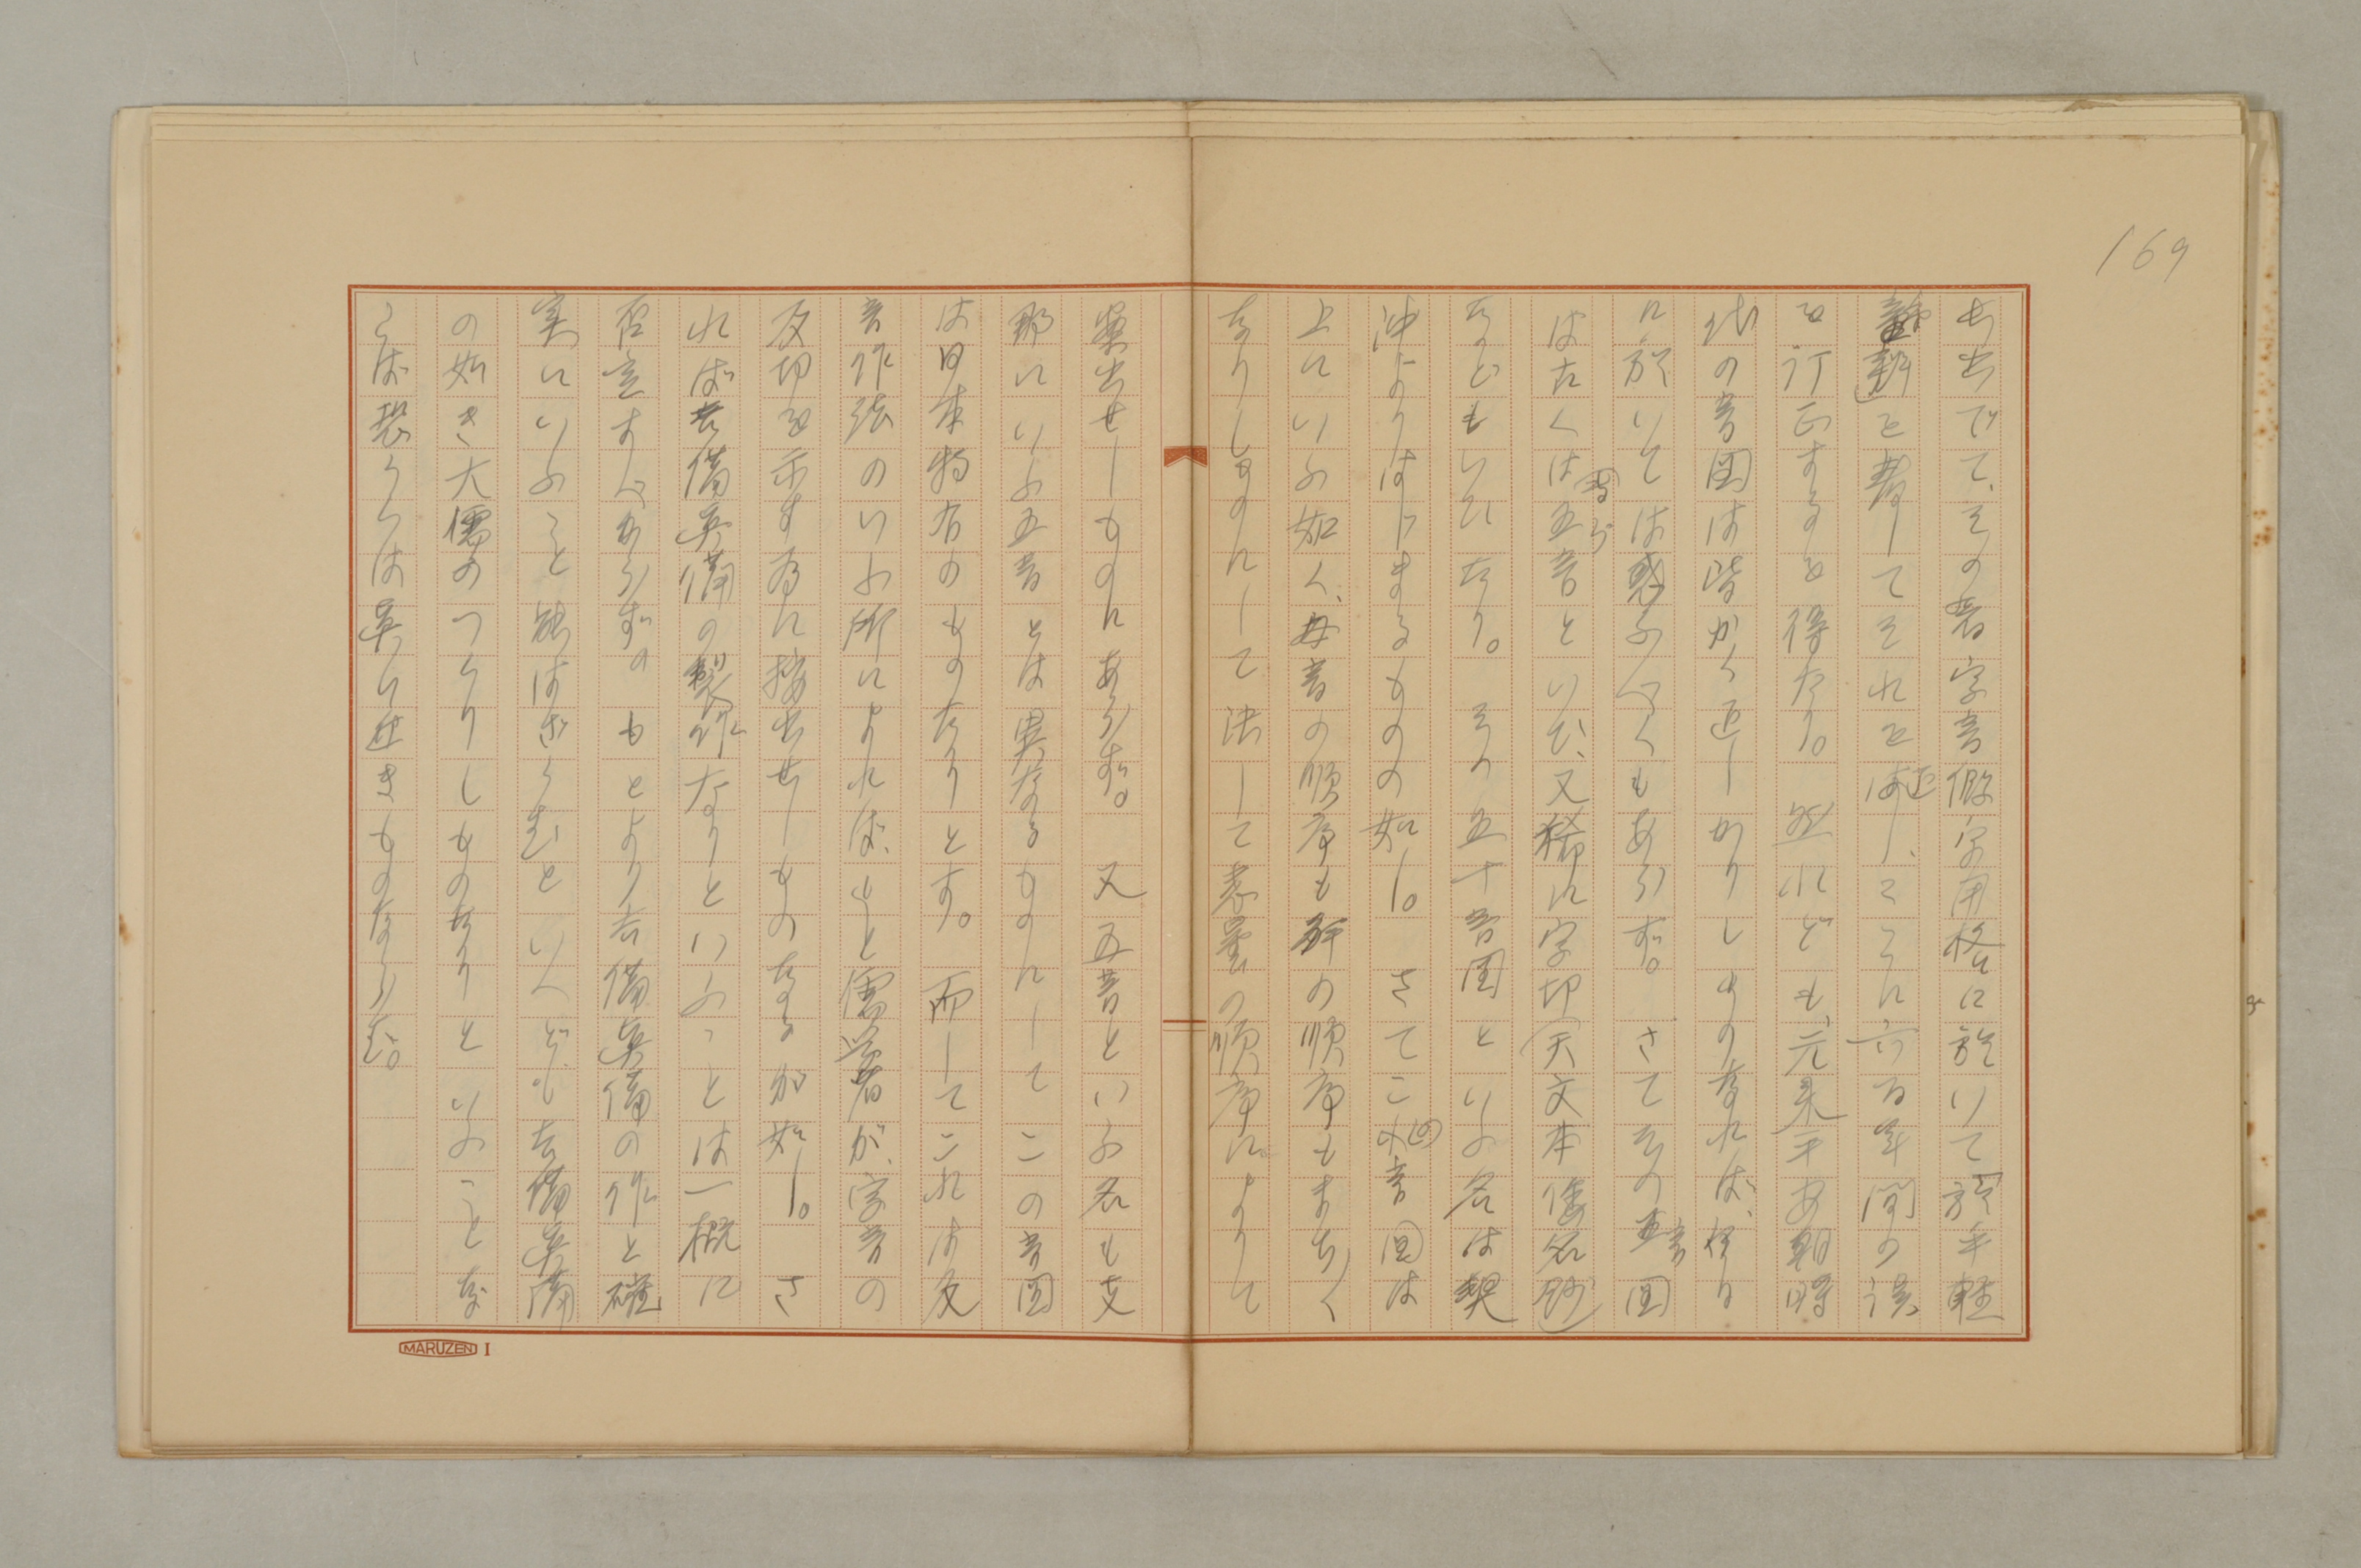 169
ち出でて、その著字音仮字用格に於いて「於乎軽
重辨」を著してそれを匡し、ここに六百年間の誤
を訂正するを得たり。然れども、元来平安朝時
代の音図は皆かく正しかりしものなれば、
に於いては惑ふべくもあらず。さてその五音図
は古くは専ら五音といひ、又稀に字切(天文本倭名鈔)
などもいひたり。その五十音図といふ名は契
沖よりはじまるものの如し。さてこの音図は
上にいふ如く、母音の順序も行の順序もまちまち
なりしものにして決して悉曇の順序によりて
案出せしものにあらず。又五音といふ名も支
那にいふ五音とは異なるものにしてこの音図
は日本特有のものなりとす。而してこれは反
音作法のいふ所によれば、もと儒者が、字音の
反切を示す為に按出せしものなるが如し。さ
れば吉備真備の製作なりといふことは一概に
否定すべからず。もとより吉備真備の作と確
実にいふこと能はざらむといへども、吉備真備
の如き大儒のつくりしものなりといふことな
らば恐らくは真に近きものならむ。
MARUZEN I